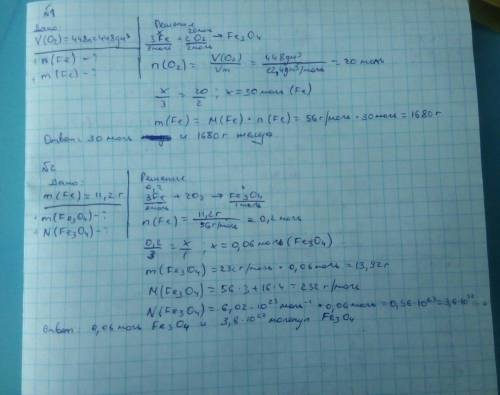 №1
Дано:
V(O₂)=448л=448дм³
n(Fe) - ?
m(Fe) - ?
Решение
x 20моль
3Fe + 2O₂ → Fe₃O₄
3моль 2моль
n(O₂) = V(O₂)/Vm = 448дм³/22,4дм³/моль = 20 моль
x/3 = 20/2 ; x = 30 моль (Fe)
m(Fe) = M(Fe) · n(Fe) = 56 г/моль · 30 моль = 1680 г
Ответ: 30 моль и 1680 г железа
№2
Дано:
m(Fe) = 11,2 г
m(Fe₃O₄) - ?
N(Fe₃O₄) - ?
Решение
0,2 x
3Fe + 2O₂ → Fe₃O₄
3моль 1моль
n(Fe) = 11,2г/56г/моль = 0,2 моль
0,2/3 = x/1 ; x = 0,06 моль (Fe₃O₄)
m(Fe₃O₄) = 232 г/моль · 0,06 моль = 13,92 г
M(Fe₃O₄) = 56 · 3 + 16 · 4 = 232 г/моль
N(Fe₃O₄) = 6,02 · 10²³ моль⁻¹ · 0,06 моль =
Ответ: 0,06 моль Fe₃O₄ и молекул Fe₃O₄